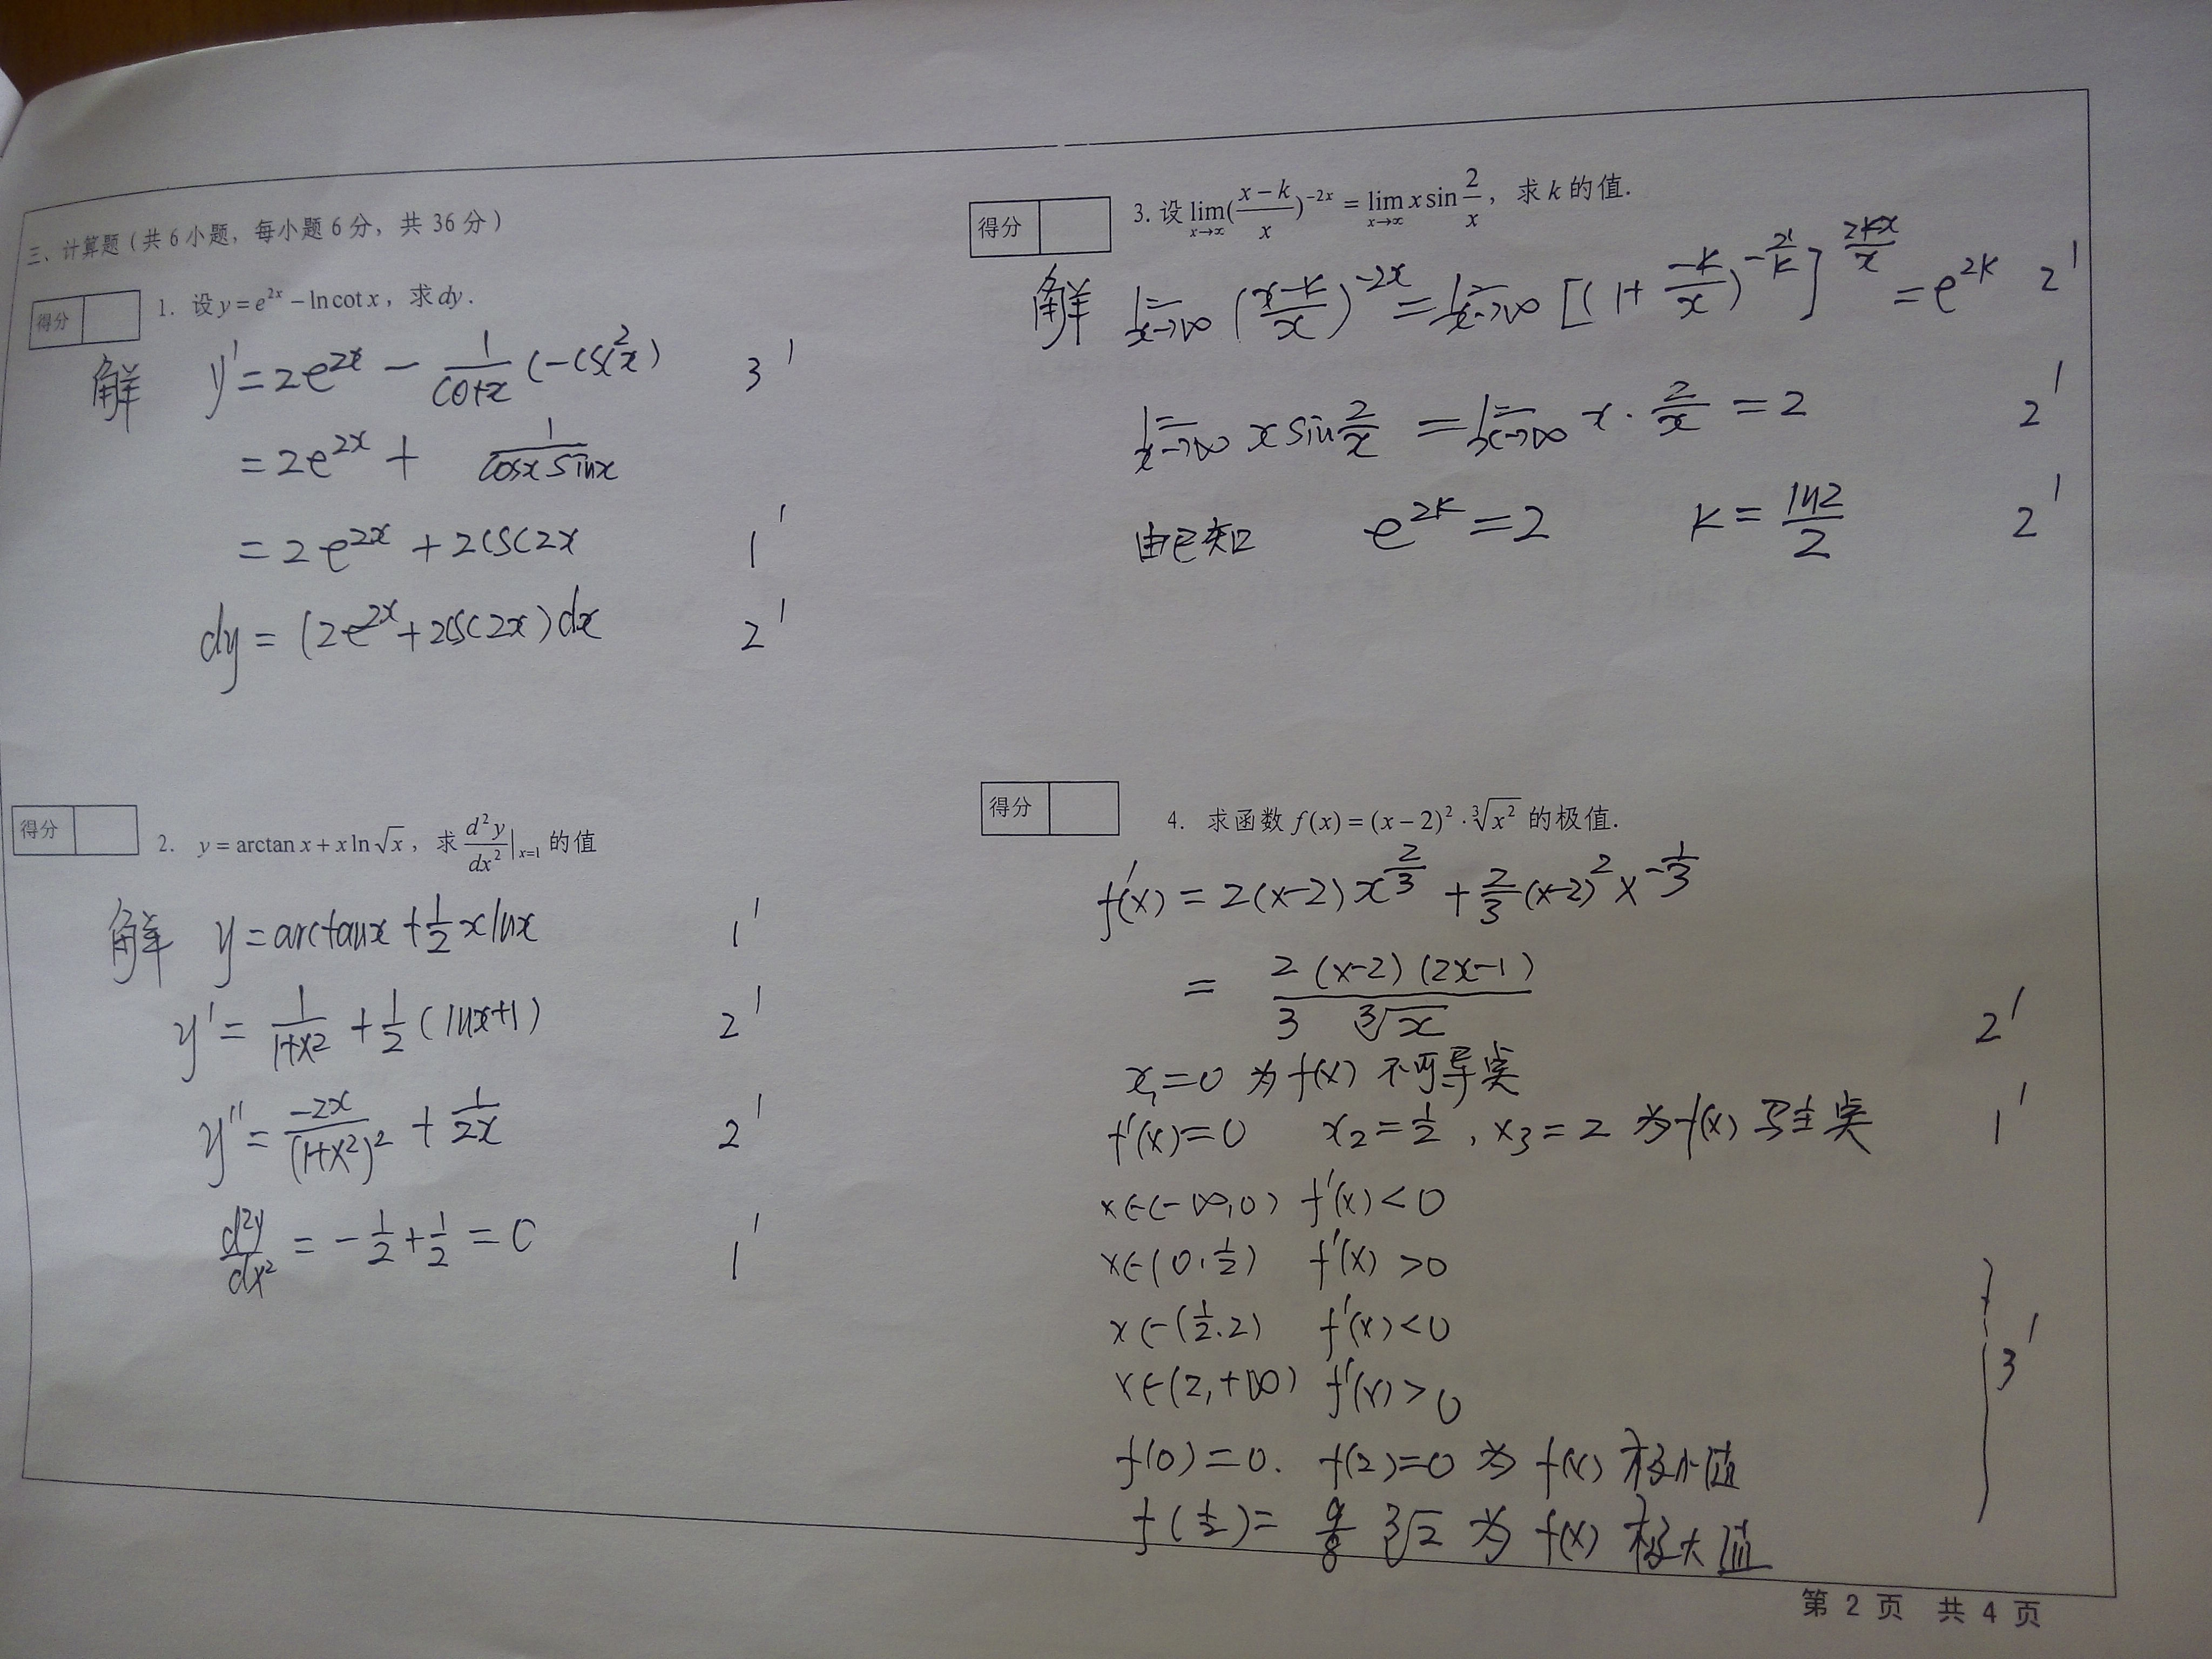 三、计算题（共6小题，每小题6分，共36分）
得分
1. 设 y = e^{2x} − ln cot x，求 dy.
解 y' = 2e^{2x} − \frac{1}{cot x}(−csc^2 x) 3'
= 2e^{2x} + \frac{1}{cos x sin x}
= 2e^{2x} + 2csc2x 1'
dy = (2e^{2x} + 2csc2x)dx 2'
得分
2. y = arctan x + x ln √x，求 \frac{d^2y}{dx^2}|_{x=1} 的值
解 y = arctan x + \frac{1}{2} x ln x 1'
y' = \frac{1}{1+x^2} + \frac{1}{2}(ln x + 1) 2'
y'' = \frac{-2x}{(1+x^2)^2} + \frac{1}{2x} 2'
\frac{d^2y}{dx^2} = −\frac{1}{2} + \frac{1}{2} = 0 1'
得分
3. 设 \lim_{x→∞}(\frac{x−k}{x})^{−2x} = \lim_{x→∞} x sin\frac{2}{x}，求 k 的值.
解 \lim_{x→∞} (\frac{x−k}{x})^{−2x} = \lim_{x→∞} [(1+\frac{−k}{x})^{−\frac{x}{k}}]^{\frac{2kx}{x}} = e^{2k} 2'
\lim_{x→∞} x sin\frac{2}{x} = \lim_{x→∞} x·\frac{2}{x} = 2 2'
由已知 e^{2k} = 2 k = \frac{ln2}{2} 2'
得分
4. 求函数 f(x) = (x−2)^2·\sqrt[3]{x^2} 的极值.
f'(x) = 2(x−2)x^{\frac{2}{3}} + \frac{2}{3}(x−2)^2 x^{−\frac{1}{3}}
= \frac{2(x−2)(2x−1)}{3\sqrt[3]{x}} 2'
x_1=0 为f(x) 不可导点
f'(x)=0 x_2=\frac{1}{2}, x_3=2 为f(x) 驻点 1'
x∈(−∞,0) f'(x)<0
x∈(0,\frac{1}{2}) f'(x)>0
x∈(\frac{1}{2},2) f'(x)<0
x∈(2,+∞) f'(x)>0 3'
f(0)=0. f(2)=0 为 f(x) 极小值
f(\frac{1}{2})= \frac{9}{8}\sqrt[3]{2} 为 f(x) 极大值
第 2 页 共 4 页